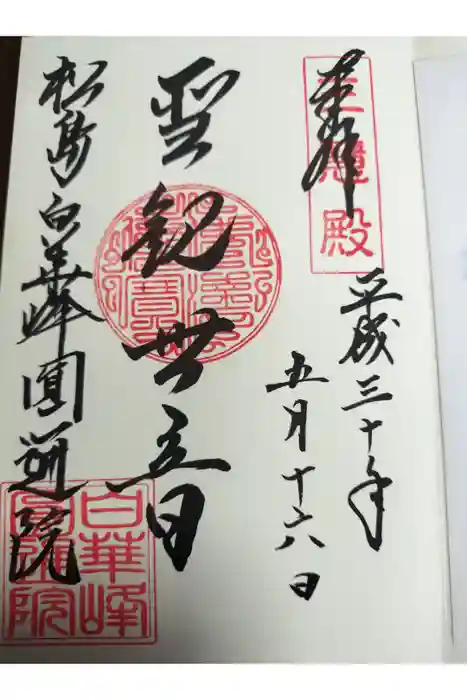 奉拝
平成三十年
五月十六日
聖観世音
松島白華峰圓通院
三慧殿
白華峰
圓通院